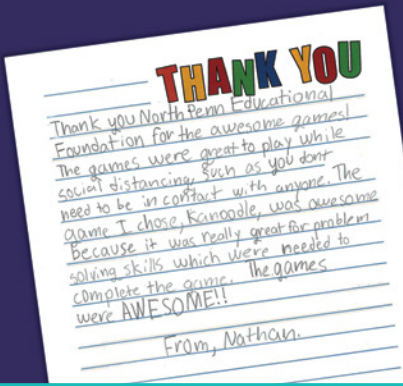 THANK YOU
Thank you North Penn Educational
Foundation for the awesome games!
The games were great to play while
social distancing, such as you dont
need to be in contact with anyone. The
game I chose, Kanoodle, was awesome
because it was really great for problem
solving skills which were needed to
complete the game. The games
were AWESOME!!
From, Nathan.